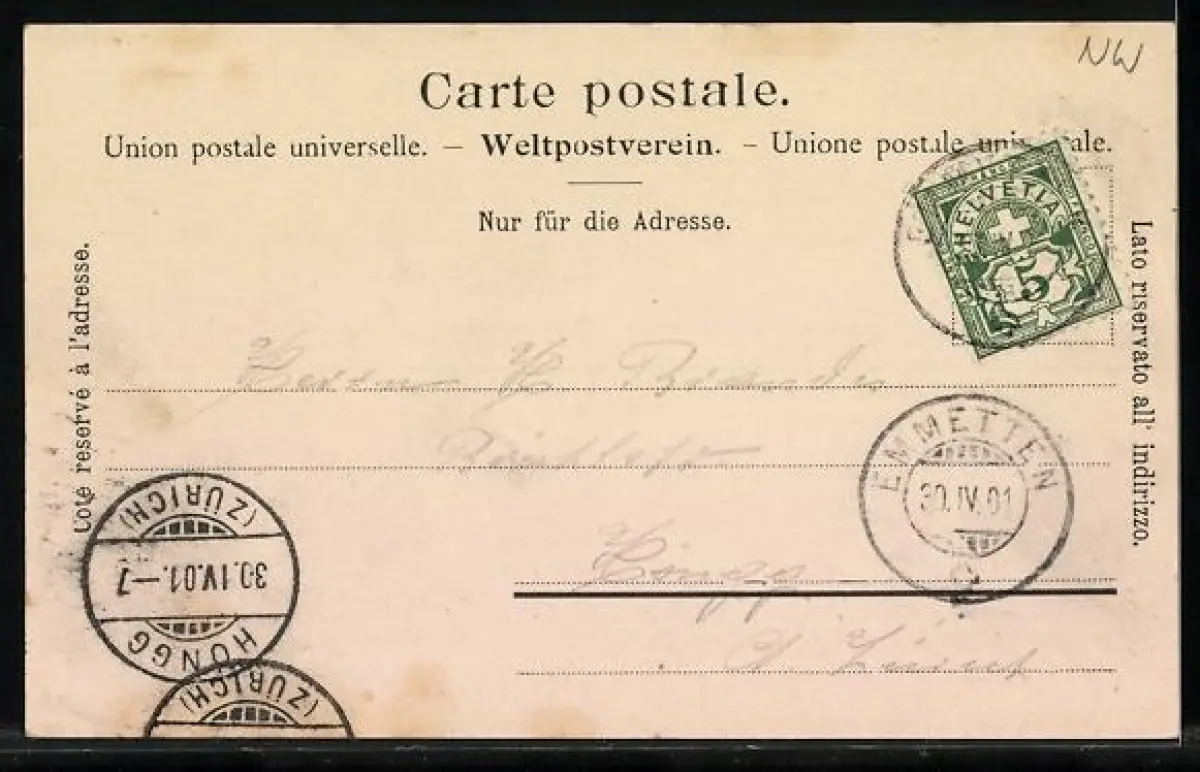 NW
Carte postale.
Union postale universelle. — Weltpostverein. — Unione postale universale.
Nur für die Adresse.
Coté reservé à l'adresse.
Lato riservato all' indirizzo.
HELVETIA
5
H.
EMMETTEN
30.IV.01
Höngg
(ZÜRICH)
30.IV.01.–7
HÖNGG
(ZÜRICH)